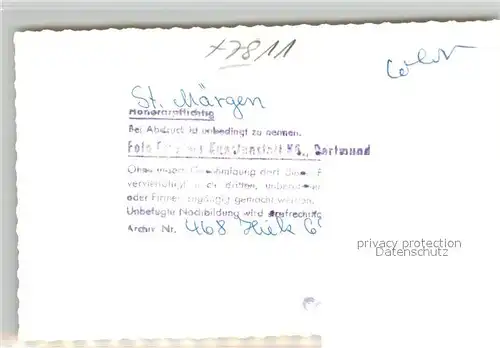 +7811
Color
St. Märgen
Honorarpflichtig
Bei Abdruck ist unbedingt zu nennen:
Foto Kunstanstalt KG., Dortmund
Ohne unsere Genehmigung darf dieses F
vervielfältigt noch dritten, unberechti
oder Firmen zugängig gemacht werden.
Unbefugte Nachbildung wird strafrechtlic
Archiv Nr. 468 Hiek 6
privacy protection
DatenSchutz